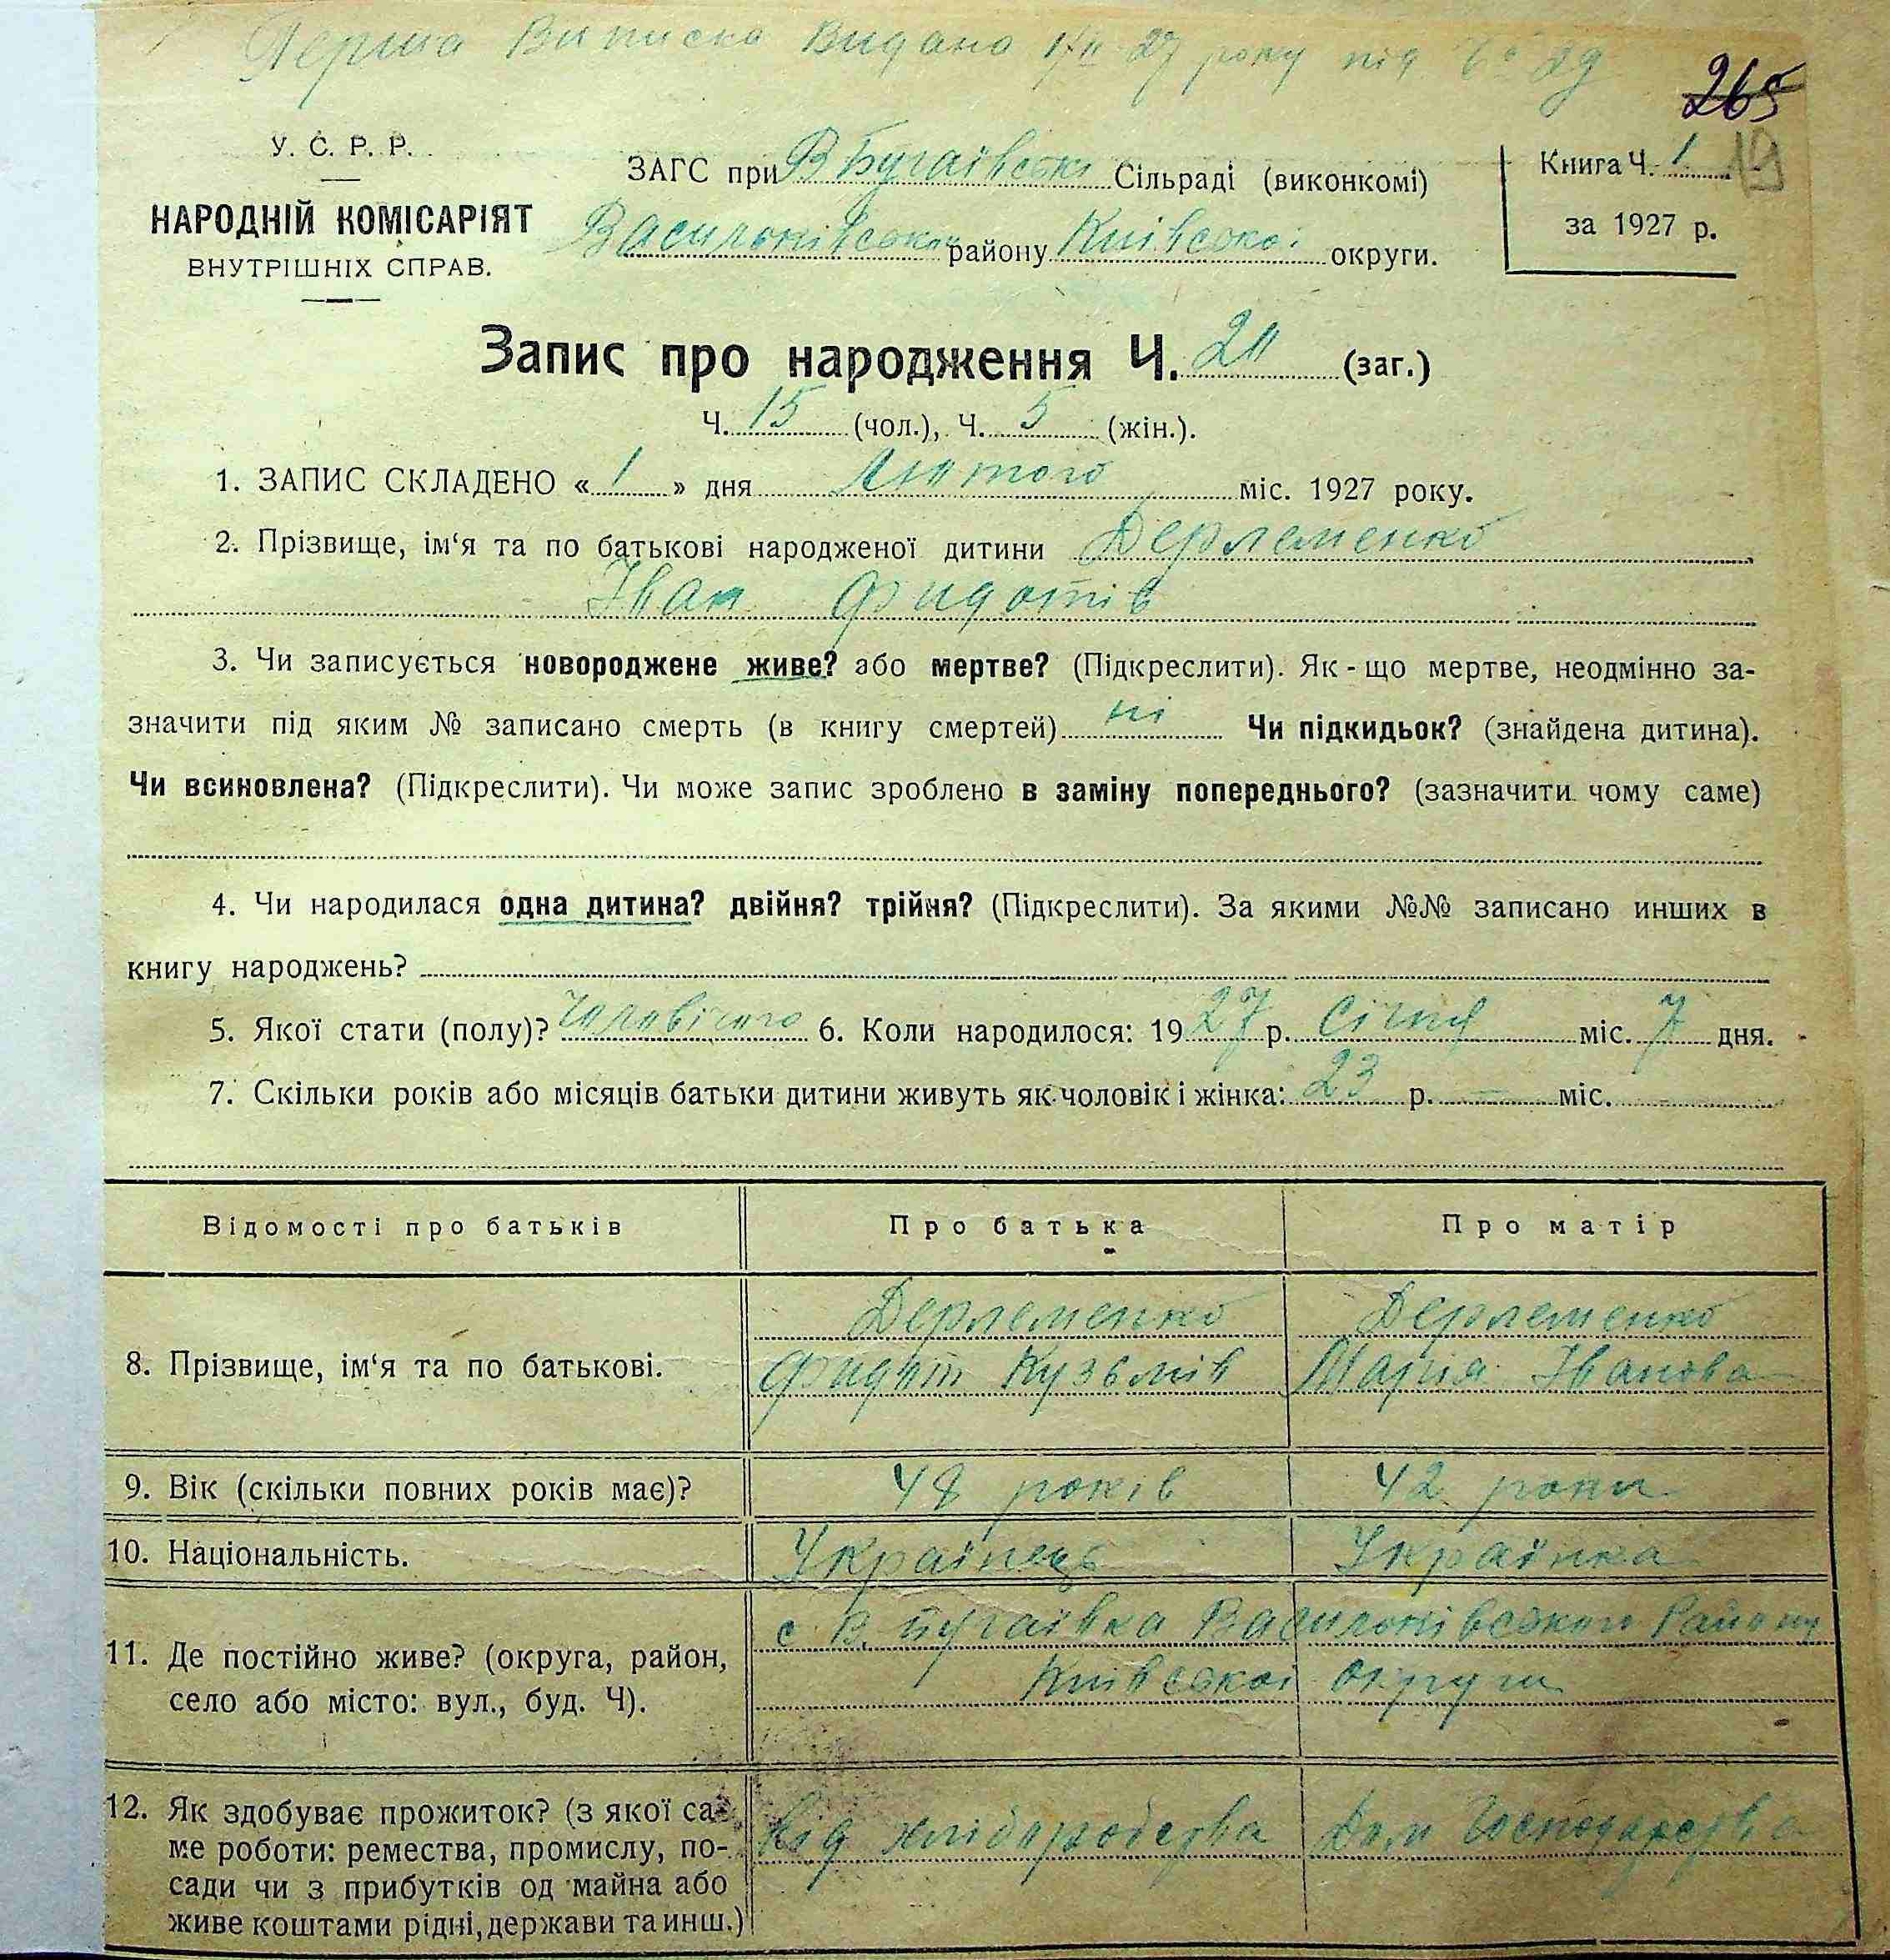 Перша Виписка Видано 1/II 27 року під № 29
265
У. С. Р. Р.
НАРОДНІЙ КОМІСАРІЯТ
ВНУТРІШНІХ СПРАВ.
ЗАГС при В Бугаївські Сільраді (виконкомі)
Васильківського району Київської округи.
Книга Ч. 1
19
за 1927 р.
Запис про народження Ч. 20 (заг.)
Ч. 15 (чол.), Ч. 5 (жін.).
1. ЗАПИС СКЛАДЕНО « 1 » дня Лютого міс. 1927 року.
2. Прізвище, ім‘я та по батькові народженої дитини Дерлеменко
Іван Фидотів
3. Чи записується новороджене живе? або мертве? (Підкреслити). Як-що мертве, неодмінно за-
значити під яким № записано смерть (в книгу смертей) ні Чи підкидьок? (знайдена дитина).
Чи всиновлена? (Підкреслити). Чи може запис зроблено в заміну попереднього? (зазначити чому саме)
4. Чи народилася одна дитина? двійня? трійня? (Підкреслити). За якими №№ записано инших в
книгу народжень?
5. Якої стати (полу)? Чоловічого 6. Коли народилося: 1927 р. Січня міс. 7 дня.
7. Скільки років або місяців батьки дитини живуть як чоловік і жінка: 23 р. — міс.
Відомості про батьків Про батька Про матір
8. Прізвище, ім‘я та по батькові.
Дерлеменко Дерлеменко
Фидот Кузьмів Марія Іванова
9. Вік (скільки повних років має)? 48 років 42 роки
10. Національність. Українець Українка
11. Де постійно живе? (округа, район,
село або місто: вул., буд. Ч).
с В. Бугаївка Васильківського Району
Київської округи
12. Як здобуває прожиток? (з якої са-
ме роботи: ремества, промислу, по-
сади чи з прибутків од майна або
живе коштами рідні, держави та инш.)
Від хліборобства Дом Господарства